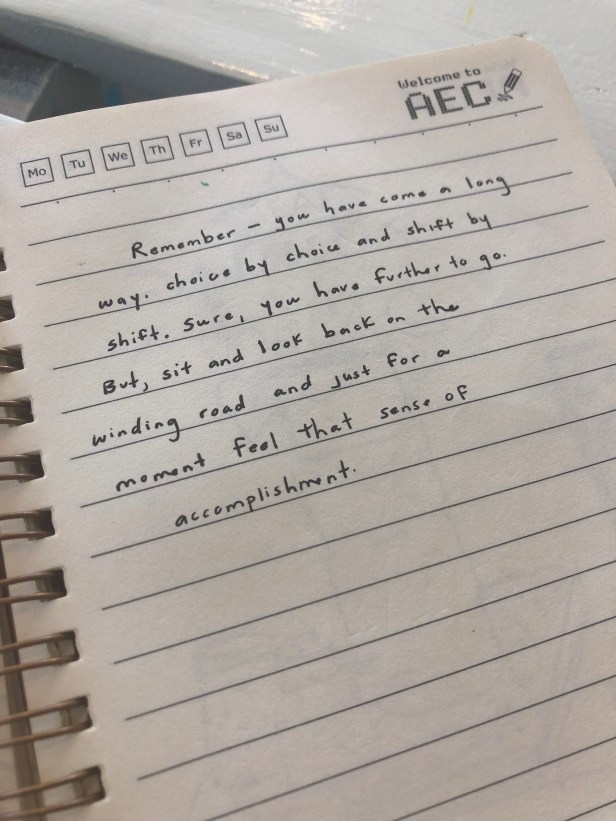 Welcome to
AEC
Mo Tu We Th Fr Sa Su
Remember - you have come a long
way. choice by choice and shift by
shift. Sure, you have further to go.
But, sit and look back on the
winding road and just for a
moment feel that sense of
accomplishment.